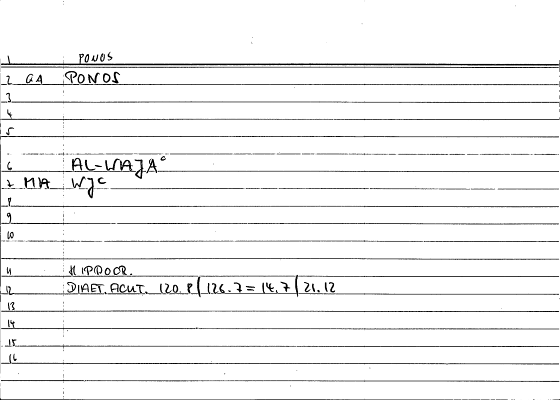 1 PONOS
2 GA PONOS
3
4
5
6 AL-WAJAʿ
7 MA WJʿ
8
9
10
11 HIPPOCR.
12 DIAET. ACUT. 120.8 / 126.7 = 14.7 / 21.12
13
14
15
16